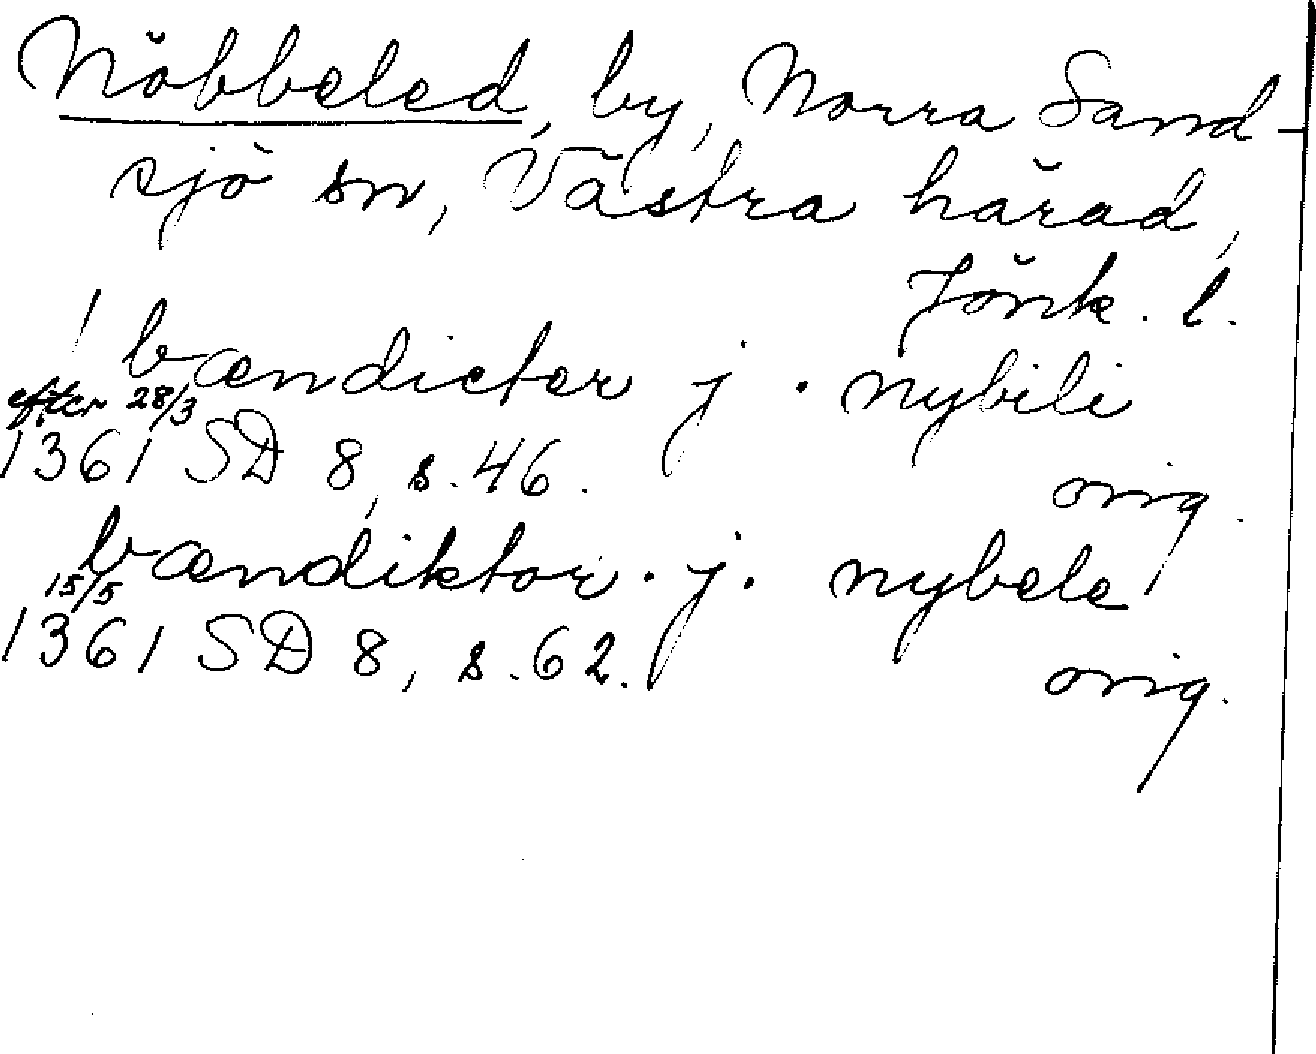 Nöbbeled, by, Norra Sand-
sjö sn, Västra härad,
Jönk. l.
/ bændicter j · nybili
efter 28/3
1361 SD 8, s. 46. orig.
bændiktor · j. nybele
15/5
1361 SD 8, s. 62. orig.